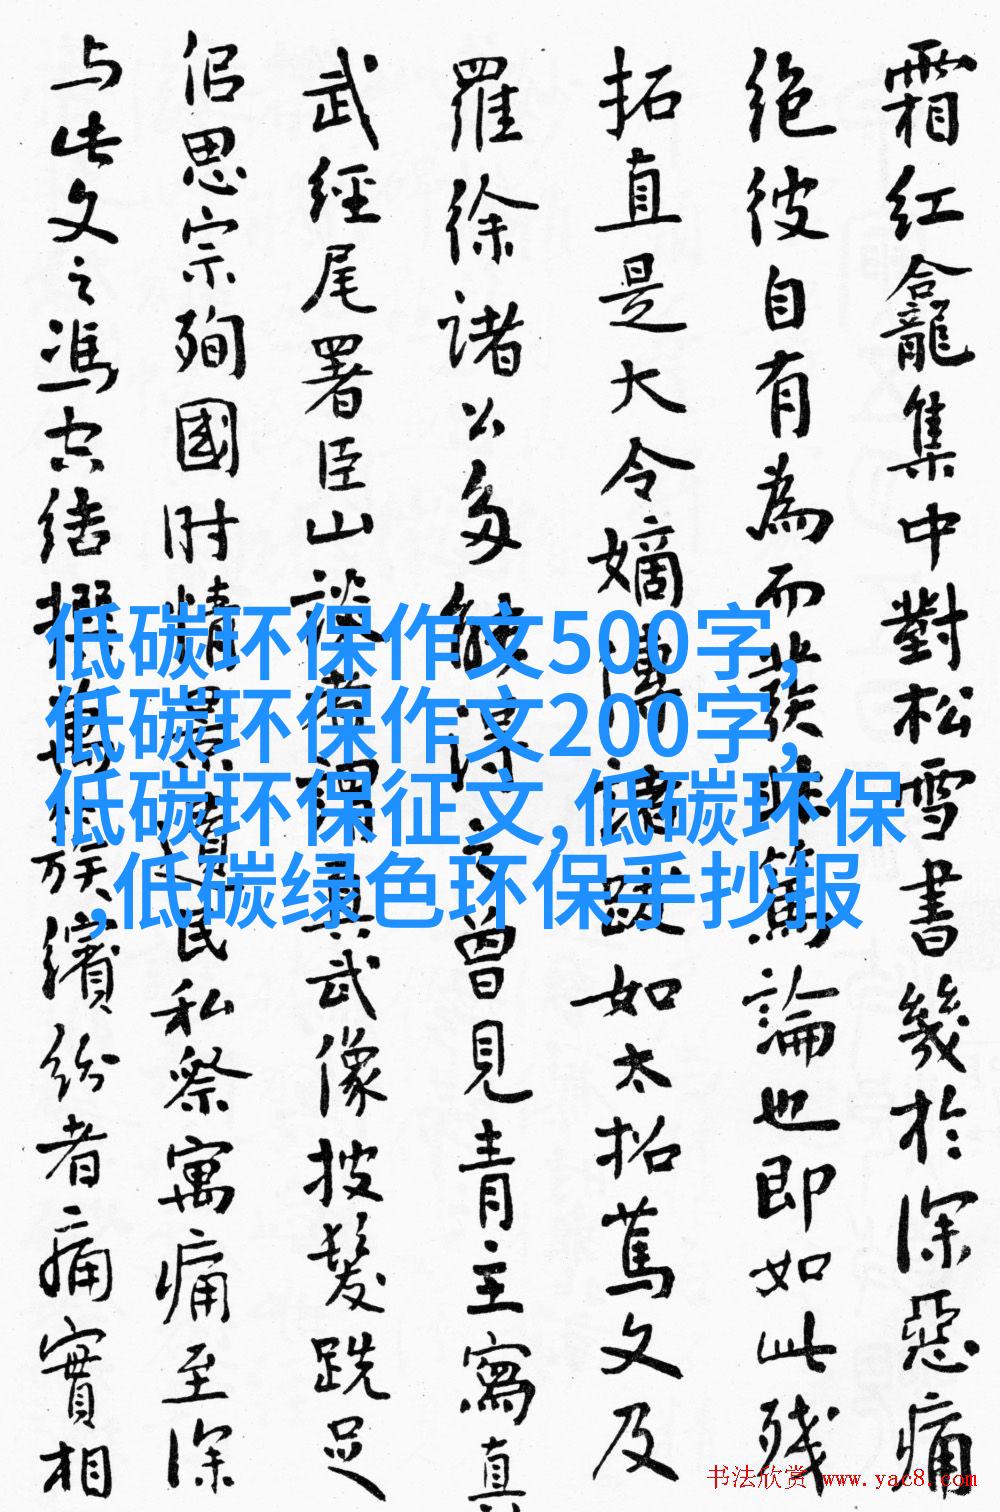 霜红龕集中對松雪書幾於深惡痛
绝彼自有為而發非篤論也即如此残
拓直是大令嫡傳謙跋如太拙篤文及
羅徐諸公多能評之曾見青主寫真
武經尾署臣山谈者謂真武像披髮跣足
侣思宗殉國时情景遺民私察寓痛至深
与此文之馮宏结撰萬族缤纷者痛實相
低碳环保作文500字,
低碳环保作文200字,
低碳环保征文,低碳环保
,低碳绿色环保手抄报
书法欣赏 www.yac8.com